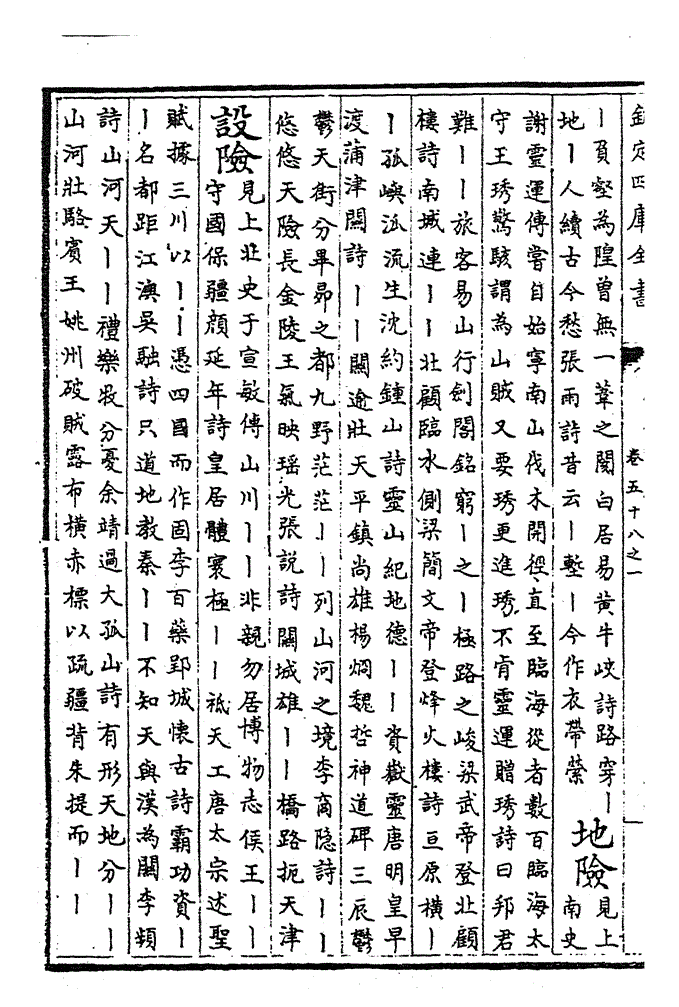 欽定四庫全書
卷五十八之一
丨負壑為隍曽無一葦之闊白居易黄牛峽詩路穿丨
地丨人續古今愁張雨詩昔云丨壍丨今作衣帶縈
地險
見上
南史
謝靈運傳嘗自始寧南山伐木開徑直至臨海從者數百臨海太
守王琇驚駭謂為山賊又要琇更進琇不肯靈運贈琇詩曰邦君
難丨丨旅客易山行劍閣銘窮丨之丨極路之峻梁武帝登北顧
樓詩南城連丨丨北顧臨水側梁簡文帝登烽火樓詩亘原横丨
丨孤嶼泝流生沈約鍾山詩靈山紀地德丨丨資嶽靈唐明皇早
渡蒲津關詩丨丨關逾壯天平鎮尚雄楊烱魏哲神道碑三辰鬱
鬱天街分畢昴之都九野茫茫丨丨列山河之境李商隠詩丨丨
悠悠天險長金陵王氣映瑶光張説詩關城雄丨丨橋路扼天津
設險
見上北史于宣敏傳山川丨丨非親勿居博物志侯王丨丨
守國保疆顔延年詩皇居體寰極丨丨祗天工唐太宗述聖
賦據三川以丨丨憑四國而作固李百藥郢城懷古詩霸功資丨
丨名都距江澳吳融詩只道地教秦丨丨不知天與漢為關李頻
詩山河天丨丨禮樂牧分憂余靖過大孤山詩有形天地分丨丨
山河壯駱賓王姚州破賊露布横赤標以疏疆背朱提而丨丨